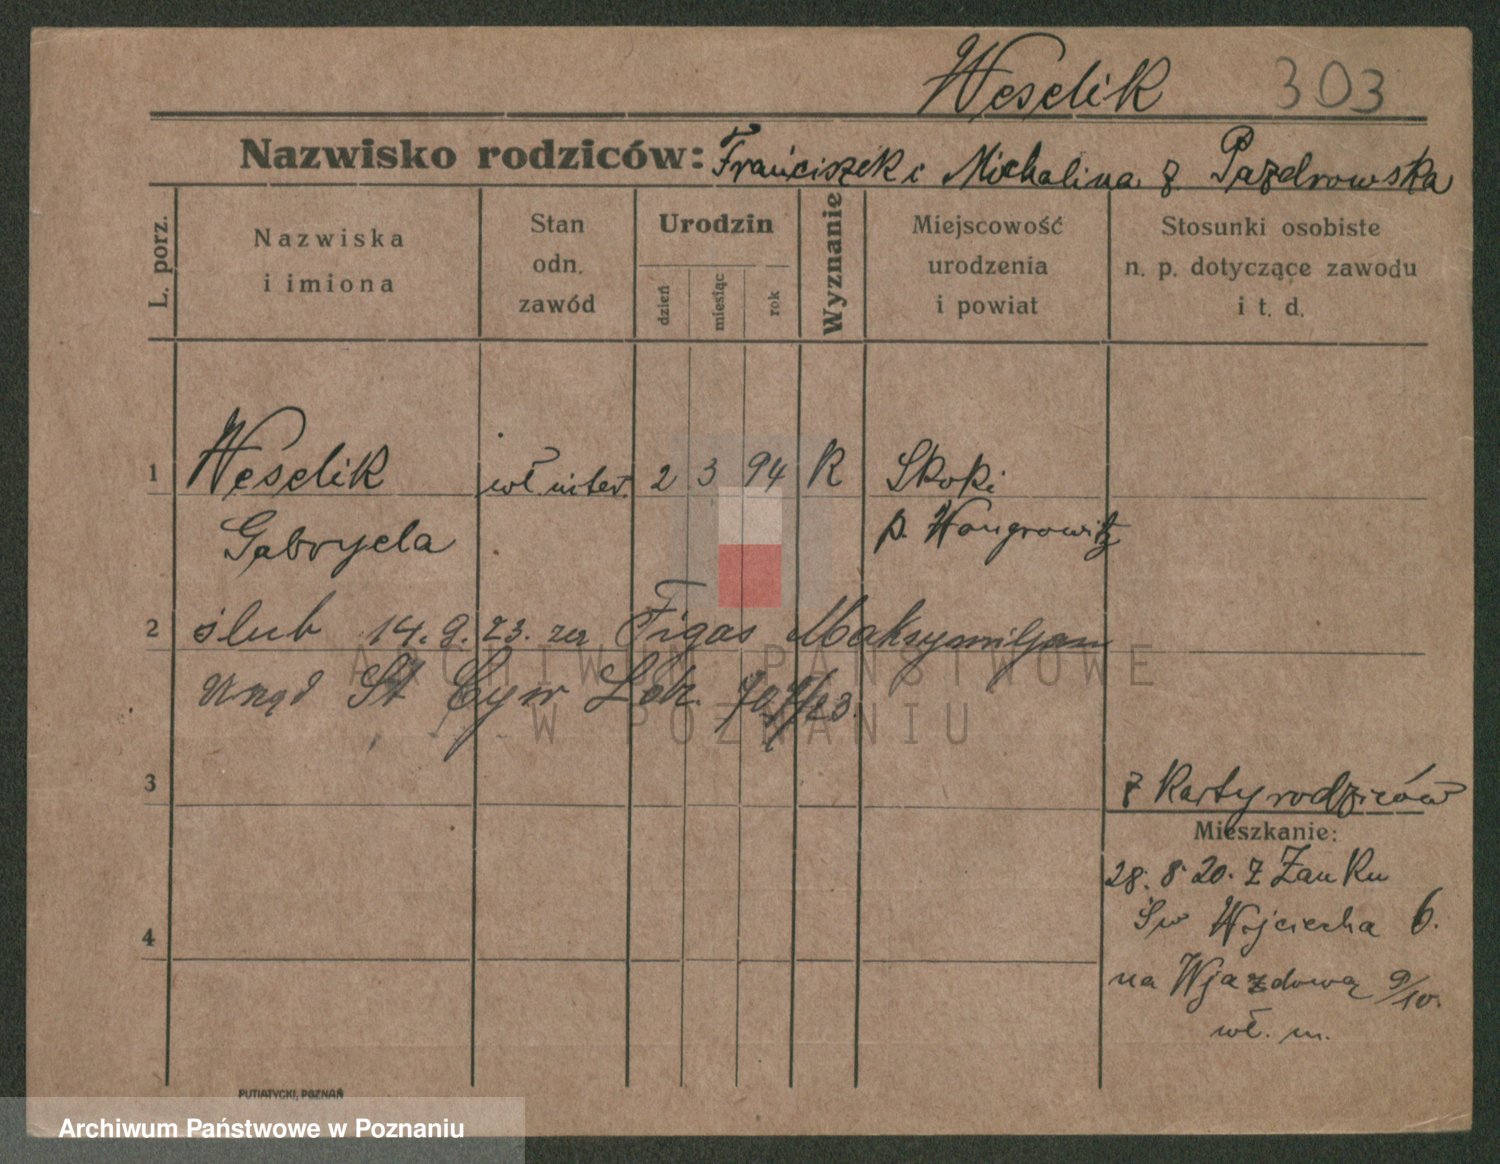 Weselik 303
Nazwisko rodziców: Franciszek i Michalina z Pazdrowska
L. porz.
Nazwiska
i imiona
Stan
odn.
zawód
Urodzin
dzień
miesiąc
rok
Wyznanie
Miejscowość
urodzenia
i powiat
Stosunki osobiste
n. p. dotyczące zawodu
i t. d.
1 Weselik wł. inter. 2 3 94 K Skoki
Gabryela p. Wongrowitz
2 ślub 14. 9. 23. Figas Maksymiljan
Urząd St Cyw
3
z Karty rodziców
Mieszkanie:
28. 8. 20. z Zanku
Św Wojciecha 6.
4
na Wjazdową 9/10.
wł. m.
PUTIATYCKI, POZNAŃ
ARCHIWUM PAŃSTWOWE
W POZNANIU
Archiwum Państwowe w Poznaniu